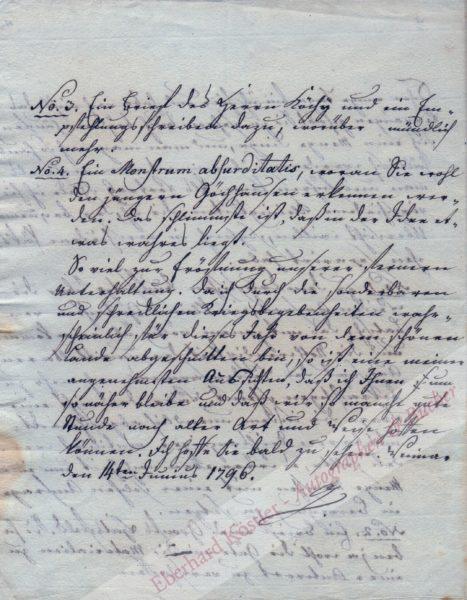 No. 3. Ein Brief des Herrn Köchy und ein Em-
pfehlungsschreiben dazu, worüber mündlich
mehr.
No. 4. Ein Monstrum absurditatis, woran Sie wohl
den jüngern Göchhausen erkennen wer-
den. Das schlimmste ist, daß in der Idee et-
was wahres liegt.
So viel zur Eröffnung unserer fernern
Unterhaltung. Da ich durch die sonderbaren
und schrecklichen Kriegsbegebenheiten wahr-
scheinlich für dieses Jahr von dem schönen
Lande abgeschnitten bin, so ist eine meiner
angenehmsten Aussichten, daß ich Ihnen um
so näher bleibe und daß wir manche gute
Stunde nach alter Art und Weise hoffen
können. Ich hoffe Sie bald zu sehen. Weimar
den 14ten Junius 1796.
G
Eberhard Köstler - Autographen & Bücher